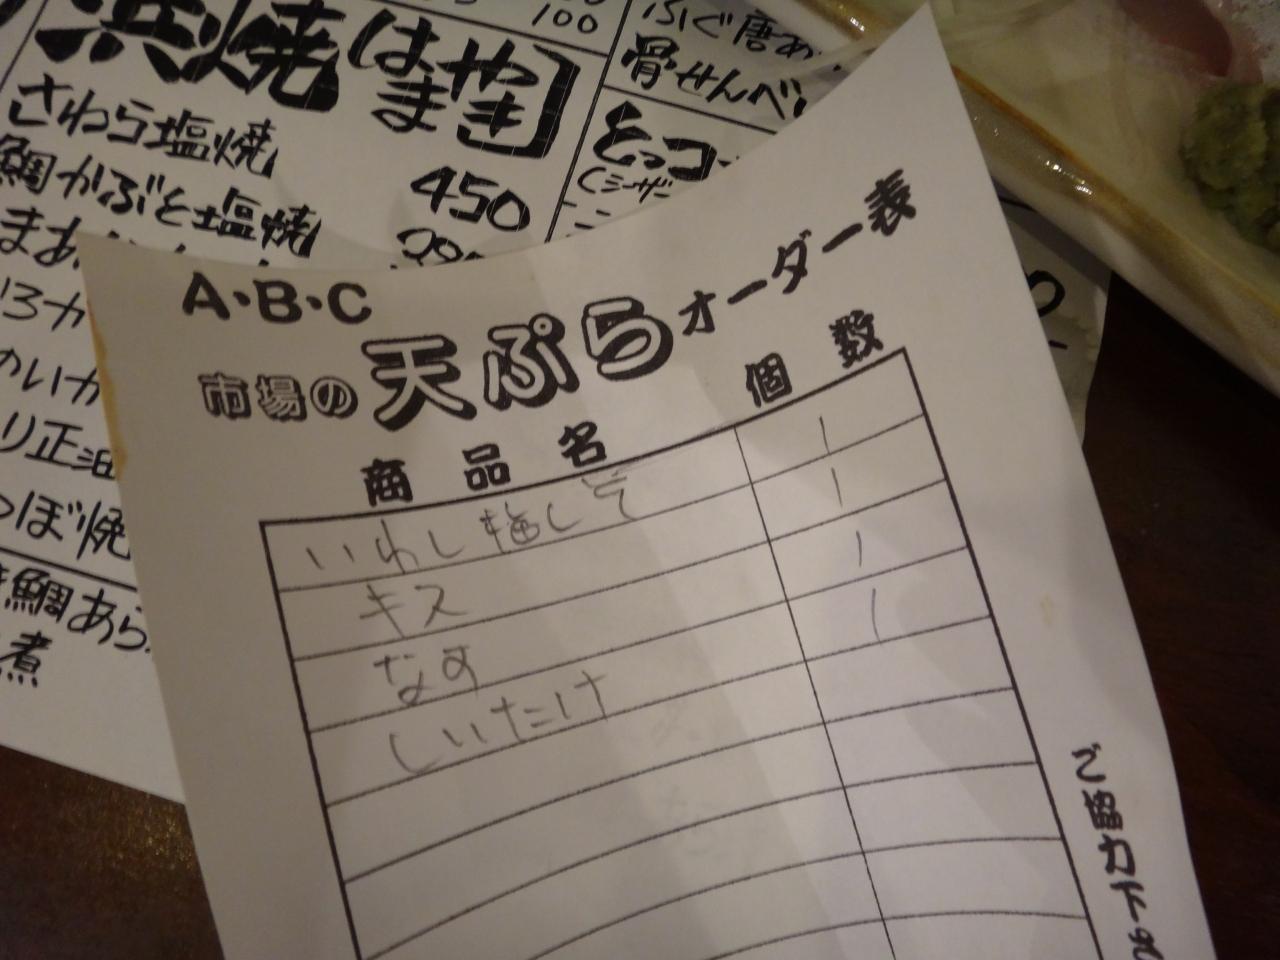 100
浜焼[はまやき]
さわら塩焼
450
鯛かぶと塩焼
ふぐ唐あ
骨せんべい
とっコ
(シーザー
り正油
つぼ焼
鯛あら
煮
A・B・C
市場の天ぷらオーダー表
商品名 個数
いわし梅しそ 1
キス 1
なす 1
しいたけ 1
ご協力下さ